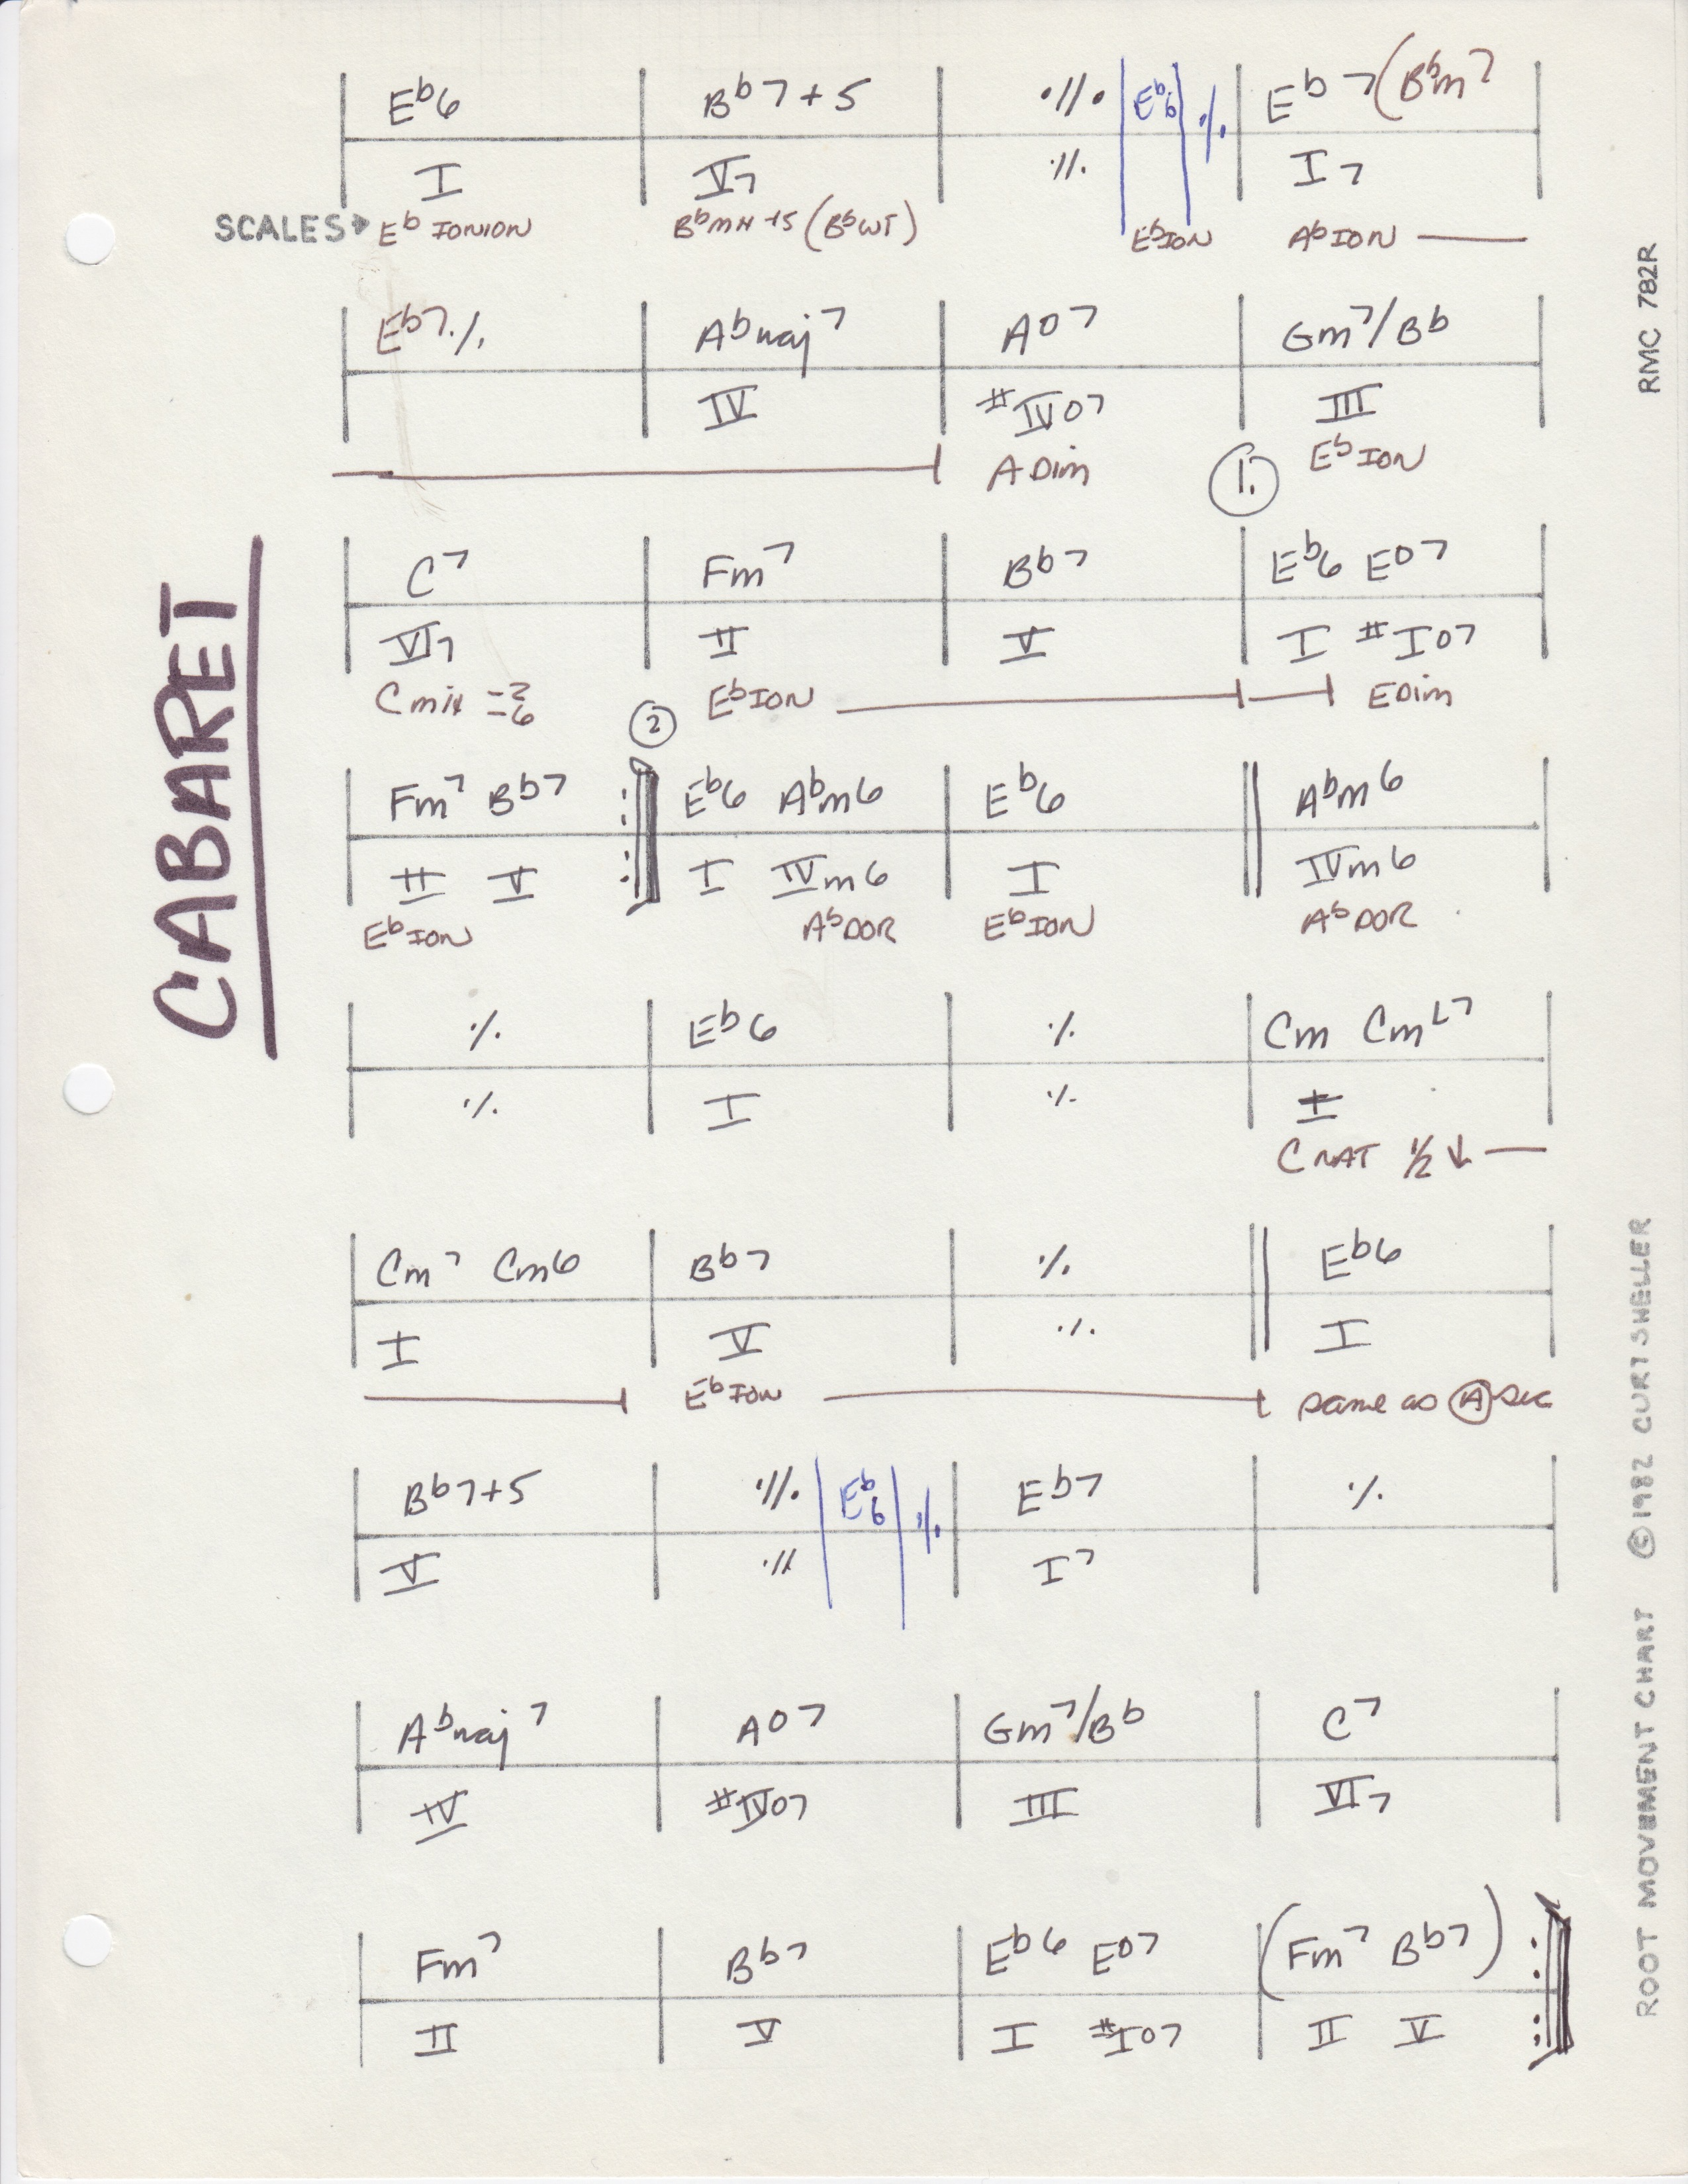 CABARET
E♭6 B♭7+5 ·//. E♭6 ·/. E♭7 (B♭m7
I V7 ·//. I7
SCALES→ E♭ IONION B♭ MIX +5 (B♭ WT) E♭ ION A♭ ION
E♭7 ·/. A♭maj7 Ao7 Gm7/B♭
IV #IVo7 III
A Dim 1. E♭ ION
C7 Fm7 B♭7 E♭6 Eo7
VI7 II V I #Io7
C mix -2 -6 E♭ ION E Dim
2
Fm7 B♭7 E♭6 A♭m6 E♭6 A♭m6
II V I IVm6 I IVm6
E♭ ION A♭ DOR E♭ ION A♭ DOR
·/. E♭6 ·/. Cm CmL7
·/. I ·/. I
C NAT ½ ↓
Cm7 Cm6 B♭7 ·/. E♭6
I V ·/. I
E♭ ION same as A sec
B♭7+5 ·//. E♭6 ·/. E♭7 ·/.
V ·// I7
A♭maj7 Ao7 Gm7/B♭ C7
IV #IVo7 III VI7
Fm7 B♭7 E♭6 Eo7 (Fm7 B♭7)
II V I #Io7 II V
ROOT MOVEMENT CHART ©1982 CURT SHELLER RMC 782R